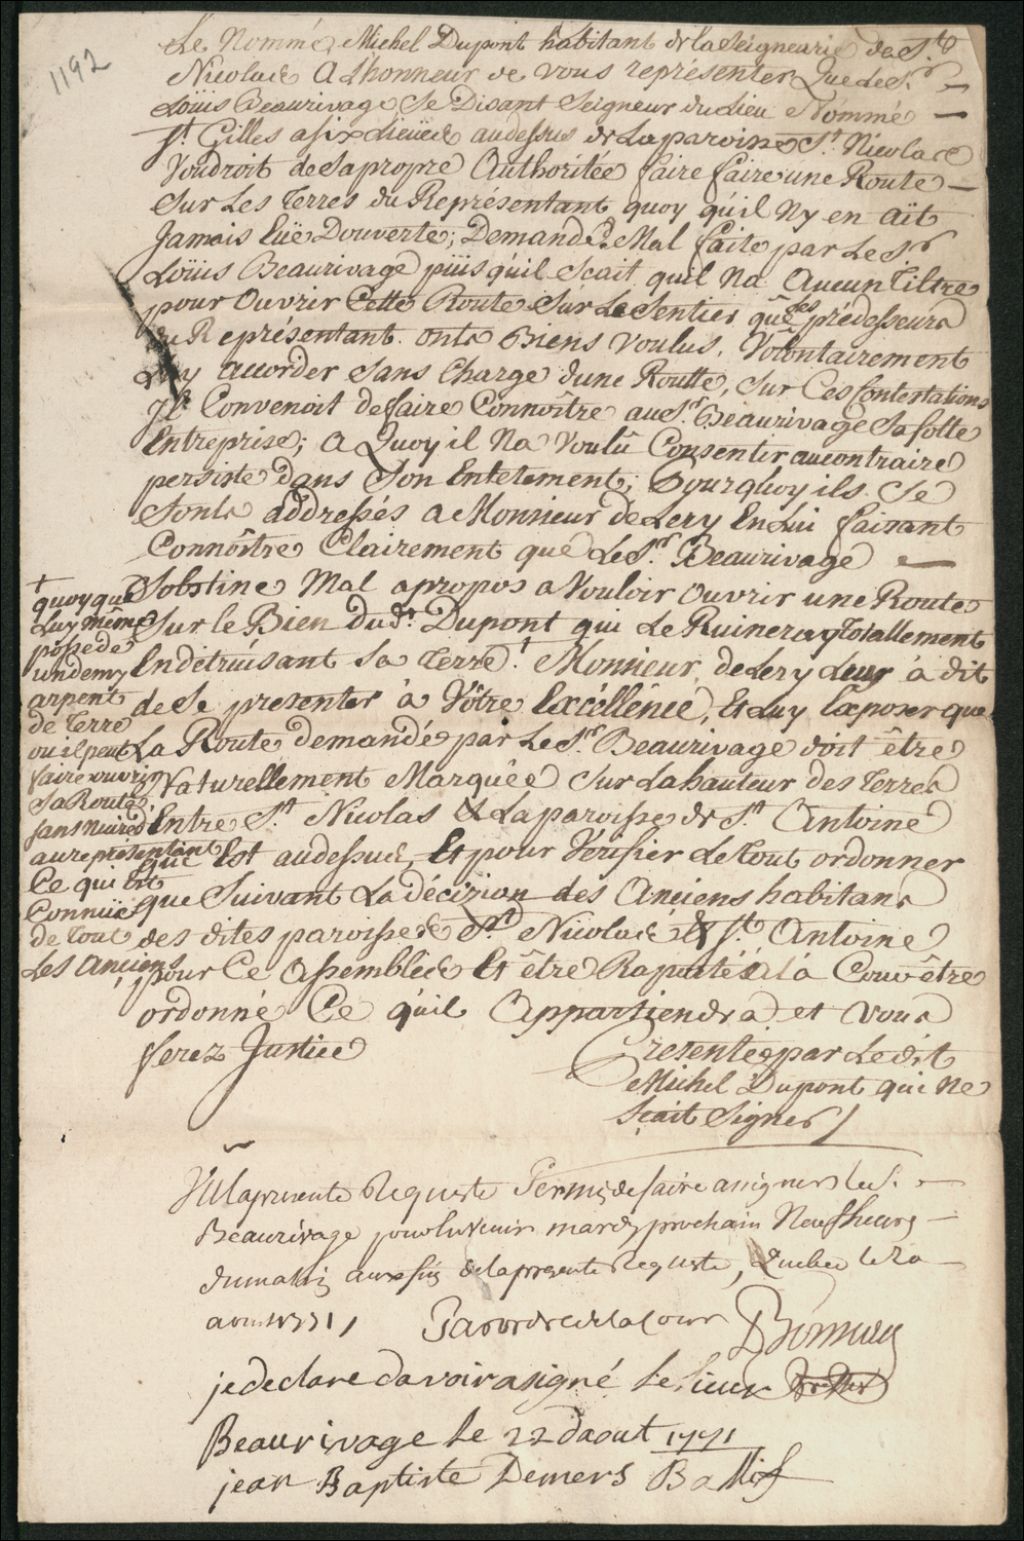 1192
Le Nommé Michel Dupont habitant de la Seigneurie de St.
Nicolace A Lhonneur de vous représenter Que Le Sr.
Loüis Beaurivage Se Disant Seigneur du Lieu Nommé
St. Gilles a six Lieües au dessus de La paroisse St. Nicolace
Voudroit de Sa propre Authoritée faire faire une Route
Sur Les Terres du Représentant quoy qu'il Ny en aït
Jamais Eüe Douverte; Demande Mal faite par Le Sr.
Loüis Beaurivage püis qu'il Scait quil Na Aucun Tiltre
pour Ouvrir Cette Route Sur Le Sentier que les prédesseurs
du Représentant onts Biens Voulus Volontairement
Luy accorder Sans Charge dune Routte, Sur Ces Contestations
Il Convenoit de faire Connoître au Sr. Beaurivage Sa folle
Entreprise; A Quoy il Na Voulû Consentir au contraire
persiste dans Son Entetement; Pourquoy ils Se
Sonts addressés a Monsieur de Lery En Lui faisant
Connoître Clairement que Le Sr. Beaurivage
Sobstine Mal apropos a Vouloir Ouvrir une Route
Sur le Bien du dt. Dupont qui Le Ruineray Totallement
En détruisant Sa Terre † Monsieur de Lery Leur à dit
de Se presenter à Vôtre Excéllence, Et Luy Exposer que
La Route demandé par Le Sr. Beaurivage doit être
Naturellement Marquée Sur La hauteur des Terres
Entre St. Nicolas & La paroisse de St. Antoine
qui Est au dessus, Et pour Vérifier Le Tout ordonner
que Suivant La décizion des Anciens habitans
des dites paroisses St. Nicolace & St. Antoine
pour Ce Assemblée Et être Raportés à la Cour être
ordonné Ce qu'il Appartiendra et Vous
ferez Justice
Presentée par Le dit
Michel Dupont qui Ne
Sçait Signer /
†
quoy que
Luy même
possede
un demy
arpent
de Terre
ou il peut
faire ouvrir
Sa Route
sans nuire
au représentant
Ce qui Est
Connüe
de Tout
Les Anciens
Vu La presente Requeste Permis de faire assigner Le S.
Beaurivage pour Luy venir mardy prochain Neuf heures
du matin aux fins de la presente Requeste, Quebec le 20
aoust 1771,
Par ordre de la Cour
je declare davoir asigné le Sieur
Beaurivage le 22 daout 1771
jean Baptiste Demers Ballif